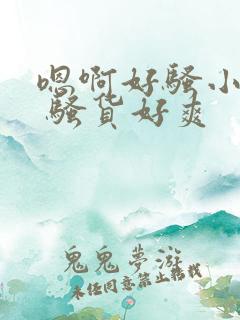 嗯啊好骚小
骚货好爽
鬼鬼夢游
未经同意禁止转载